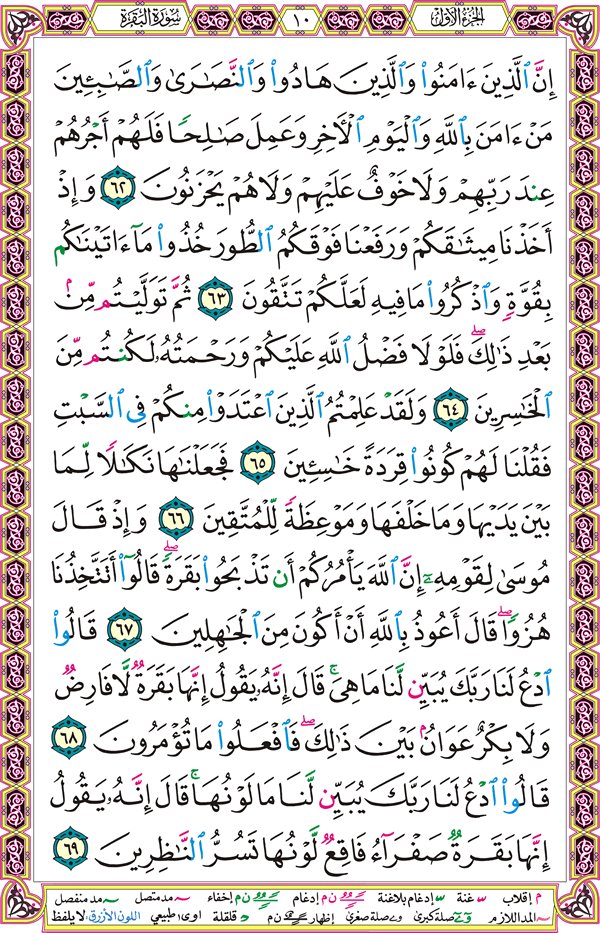 الجزء الأول
١٠
سورة البقرة
إِنَّ ٱلَّذِينَ ءَامَنُوا۟ وَٱلَّذِينَ هَادُوا۟ وَٱلنَّصَـٰرَىٰ وَٱلصَّـٰبِـِٔينَ
مَنْ ءَامَنَ بِٱللَّهِ وَٱلْيَوْمِ ٱلْـَٔاخِرِ وَعَمِلَ صَـٰلِحًا فَلَهُمْ أَجْرُهُمْ
عِندَ رَبِّهِمْ وَلَا خَوْفٌ عَلَيْهِمْ وَلَا هُمْ يَحْزَنُونَ ٦٢ وَإِذْ
أَخَذْنَا مِيثَـٰقَكُمْ وَرَفَعْنَا فَوْقَكُمُ ٱلطُّورَ خُذُوا۟ مَآ ءَاتَيْنَـٰكُم
بِقُوَّةٍ وَٱذْكُرُوا۟ مَا فِيهِ لَعَلَّكُمْ تَتَّقُونَ ٦٣ ثُمَّ تَوَلَّيْتُم مِّنۢ
بَعْدِ ذَٰلِكَ ۖ فَلَوْلَا فَضْلُ ٱللَّهِ عَلَيْكُمْ وَرَحْمَتُهُۥ لَكُنتُم مِّنَ
ٱلْخَـٰسِرِينَ ٦٤ وَلَقَدْ عَلِمْتُمُ ٱلَّذِينَ ٱعْتَدَوْا۟ مِنكُمْ فِى ٱلسَّبْتِ
فَقُلْنَا لَهُمْ كُونُوا۟ قِرَدَةً خَـٰسِـِٔينَ ٦٥ فَجَعَلْنَـٰهَا نَكَـٰلًا لِّمَا
بَيْنَ يَدَيْهَا وَمَا خَلْفَهَا وَمَوْعِظَةً لِّلْمُتَّقِينَ ٦٦ وَإِذْ قَالَ
مُوسَىٰ لِقَوْمِهِۦٓ إِنَّ ٱللَّهَ يَأْمُرُكُمْ أَن تَذْبَحُوا۟ بَقَرَةً ۖ قَالُوٓا۟ أَتَتَّخِذُنَا
هُزُوًا ۖ قَالَ أَعُوذُ بِٱللَّهِ أَنْ أَكُونَ مِنَ ٱلْجَـٰهِلِينَ ٦٧ قَالُوا۟
ٱدْعُ لَنَا رَبَّكَ يُبَيِّن لَّنَا مَا هِىَ ۚ قَالَ إِنَّهُۥ يَقُولُ إِنَّهَا بَقَرَةٌ لَّا فَارِضٌ
وَلَا بِكْرٌ عَوَانٌۢ بَيْنَ ذَٰلِكَ ۖ فَٱفْعَلُوا۟ مَا تُؤْمَرُونَ ٦٨
قَالُوا۟ ٱدْعُ لَنَا رَبَّكَ يُبَيِّن لَّنَا مَا لَوْنُهَا ۚ قَالَ إِنَّهُۥ يَقُولُ
إِنَّهَا بَقَرَةٌ صَفْرَآءُ فَاقِعٌ لَّوْنُهَا تَسُرُّ ٱلنَّـٰظِرِينَ ٦٩
م إقلاب غنة إدغام بلاغنة ن م إدغام ن م إخفاء مد متصل مد منفصل
المد اللازم صلة كبرى صلة صغرى إظهار ن م قلقلة اوى طبيعي اللون الأزرق: لا يلفظ